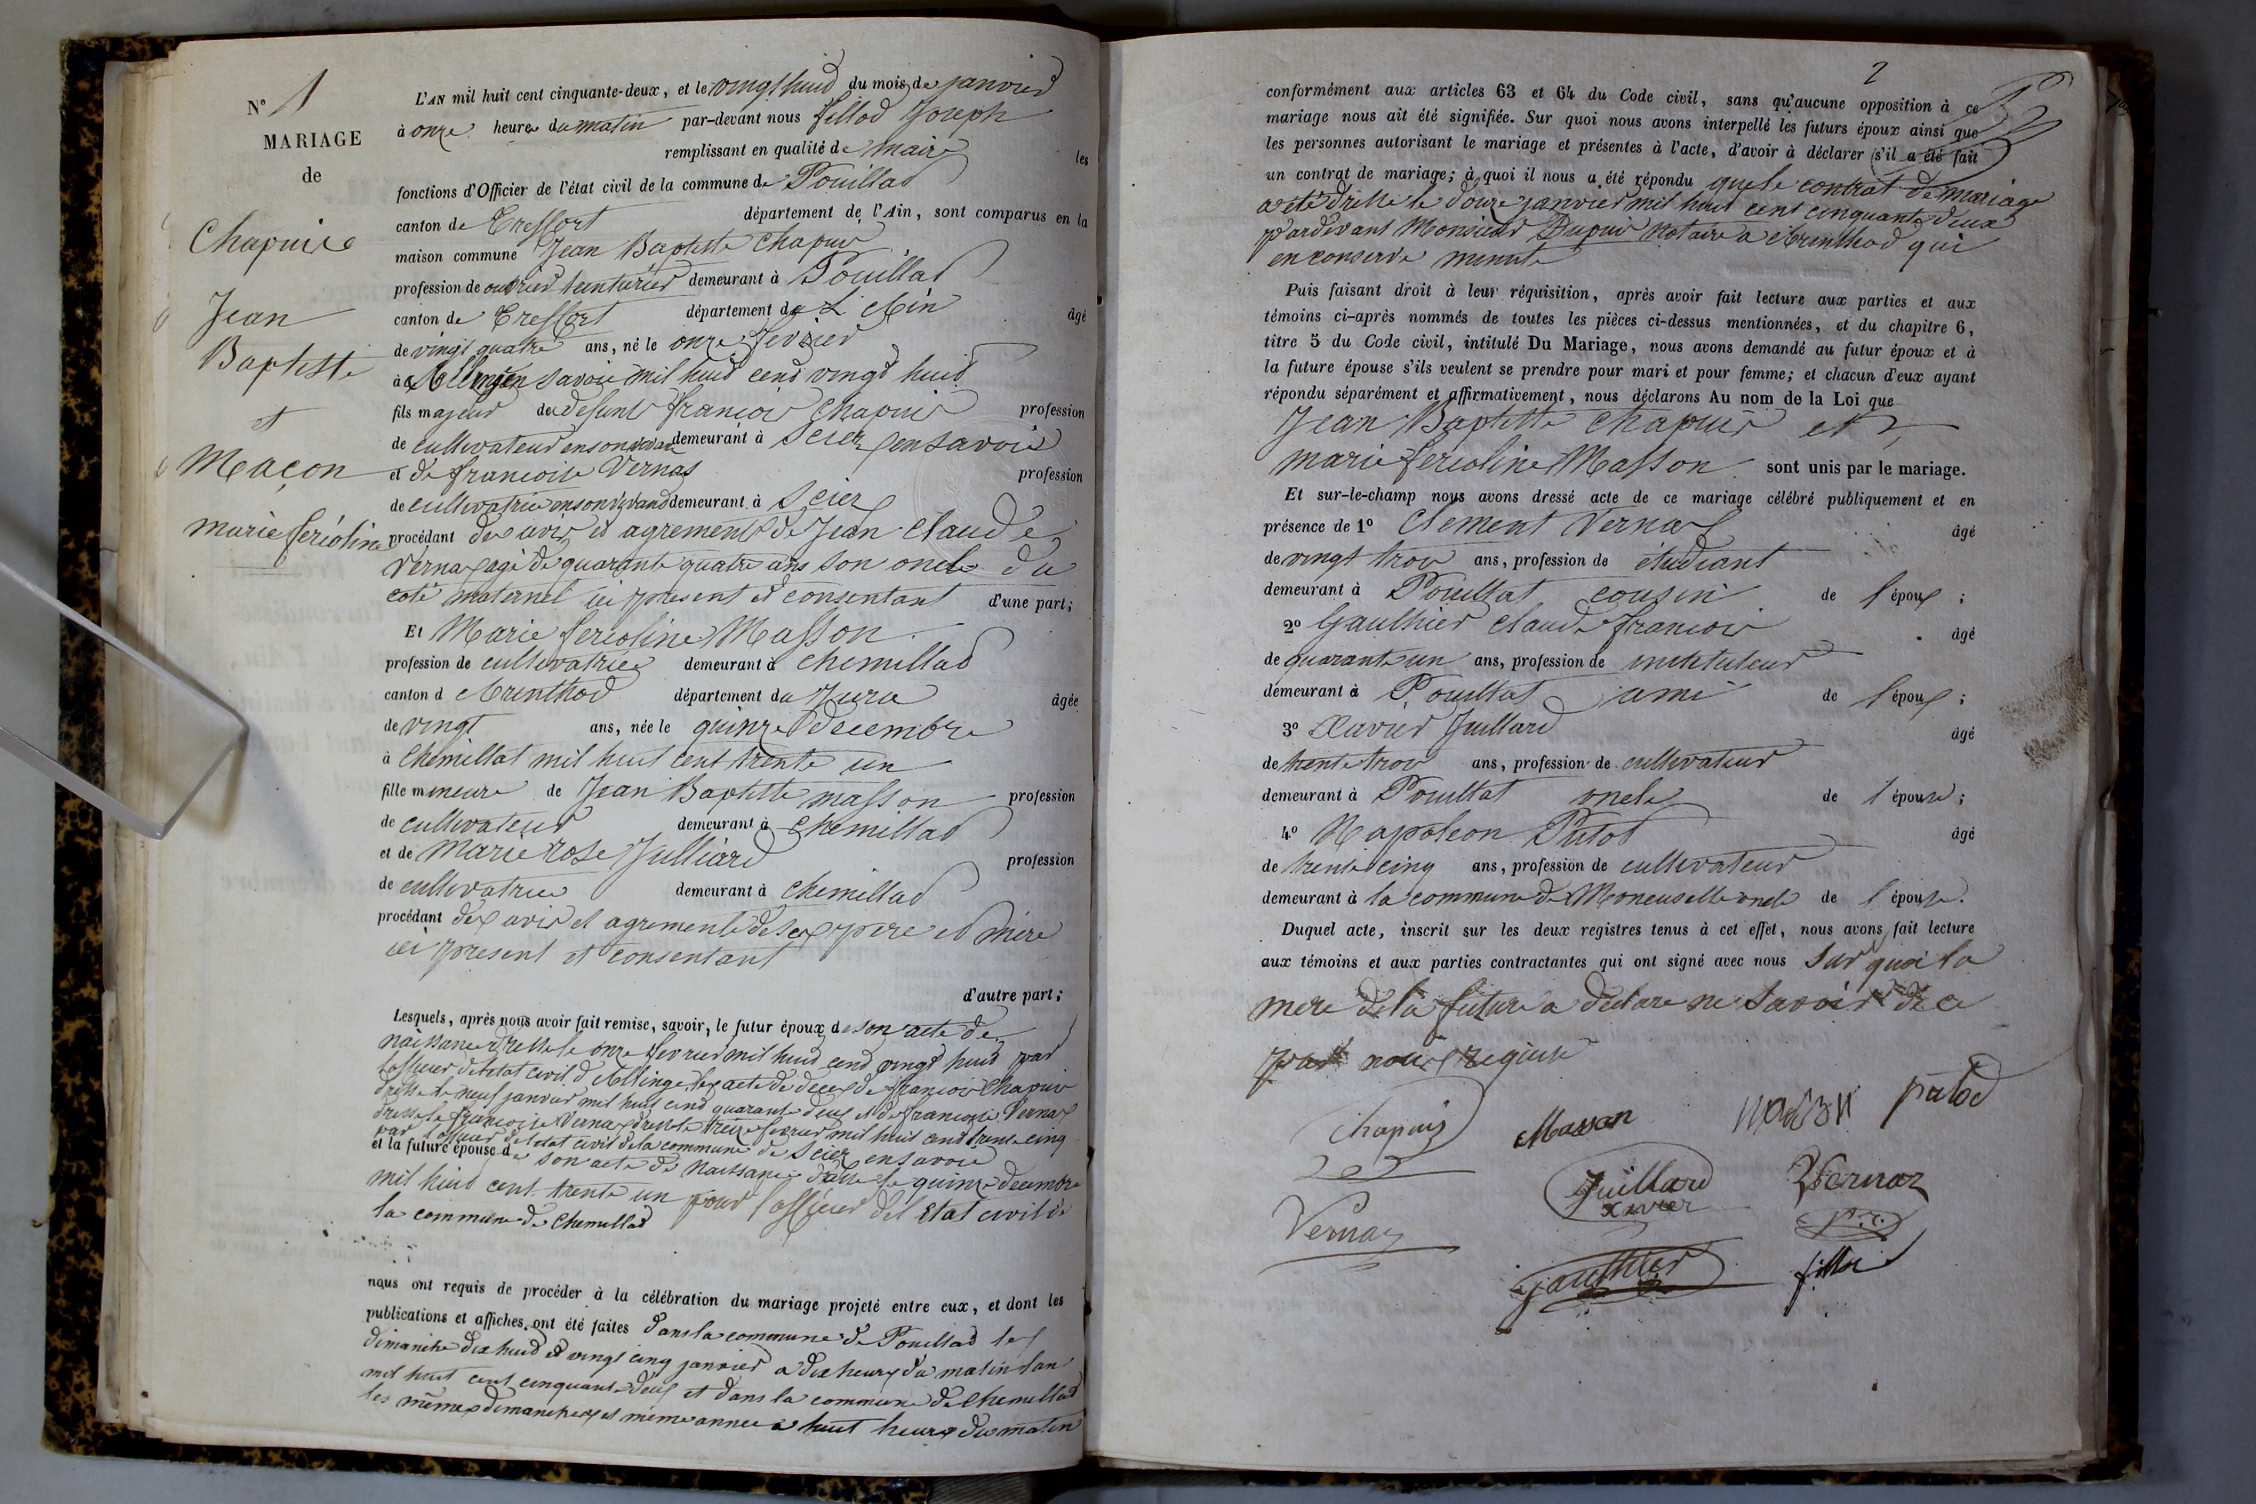 N° 1
MARIAGE
de
Chapuis
Jean
Baptiste
et
Maçon
marie férioline
L'AN mil huit cent cinquante-deux, et le vingt huid du mois de janvier
à onze heures du matin par-devant nous fillod Joseph
remplissant en qualité de maire les
fonctions d'Officier de l'état civil de la commune de Pouillad
canton de Treffort département de l'Ain, sont comparus en la
maison commune Jean Baptiste Chapuis
profession de ouvrier teinturier demeurant à Pouillad
canton de Treffort département de L'Ain âgé
de vingt quatre ans, né le onze fevrier
à Allinge en savoie mil huid cend vingd huid
fils majeur de defunt françois Chapuis profession
de cultivateur en son vivan demeurant à Sciez en savoie
et de francoise Vernas profession
de cultivatrice en son vivand demeurant à Sciez
procédant des avis et agrements de Jean Claude
Vernas agé de quarante quatre ans son oncle du
coté maternel ici présent et consentant d'une part;
Et Marie ferioline Masson
profession de cultivatrice demeurant à Chemillad
canton d'Arinthod département du Jura âgée
de vingt ans, née le quinze decembre
à Chemillat mil huit cent trente un
fille mineure de Jean Baptiste masson profession
de cultivateur demeurant à Chemillad
et de marie rose Julliard profession
de cultivatrice demeurant à Chemillad
procédant des avis et agrements de ses pere et mère
ici present et consentant
d'autre part;
Lesquels, après nous avoir fait remise, savoir, le futur époux de son acte de
naissance dressé le onze fevrier mil huid cend vingd huid par
l'officier de l'etat civil d'Allinge, les acte de deces de françois Chapuis
dressé le neuf janvier mil huit cend quarante deux et de francoise Vernas
dressé le francoise Vernas dressé le treize fevrier mil huit cend trente cinq
par l'officier de l'etat civil de la commune de Sciez en savoie
et la future épouse de son acte de naissance dressé le quinze decembre
mil huid cent trente un pour l'officier del Etat civil de
la commune de Chemillad
nous ont requis de procéder à la célébration du mariage projeté entre eux, et dont les
publications et affiches ont été faites dans la commune de Pouillad les
dimanche dix huid et vingt cinq janvier a dix heures du matin l'an
mil huit cent cinquante deux et dans la commune de Chemillad
les mêmes dimanches et même annee a huit heures du matin
2
conformément aux articles 63 et 64 du Code civil, sans qu'aucune opposition à ce
mariage nous ait été signifiée. Sur quoi nous avons interpellé les futurs époux ainsi que
les personnes autorisant le mariage et présentes à l'acte, d'avoir à déclarer s'il a été fait
un contrat de mariage; à quoi il nous a été répondu que le contrat de mariage
a été dressé le douze janvier mil huit cent cinquante deux
pardevant Monsieur Dupuis notaire a Arinthod qui
en conserve minute
Puis faisant droit à leur réquisition, après avoir fait lecture aux parties et aux
témoins ci-après nommés de toutes les pièces ci-dessus mentionnées, et du chapitre 6,
titre 5 du Code civil, intitulé Du Mariage, nous avons demandé au futur époux et à
la future épouse s'ils veulent se prendre pour mari et pour femme; et chacun d'eux ayant
répondu séparément et affirmativement, nous déclarons Au nom de la Loi que
Jean Baptiste Chapuis et
marie ferioline Masson sont unis par le mariage.
Et sur-le-champ nous avons dressé acte de ce mariage célébré publiquement et en
présence de 1° Clement Vernas âgé
de vingt trois ans, profession de étudiant
demeurant à Pouillat cousin de l'époux;
2° Gaulhier Claude francois âgé
de quarante un ans, profession de instituteur
demeurant à Pouillat ami de l'époux;
3° Xavier Juillard âgé
de trente trois ans, profession de cultivateur
demeurant à Pouillat oncle de l'épouse;
4° Napoleon Putod âgé
de trente cinq ans, profession de cultivateur
demeurant à la commune de Moneuselle oncle de l'épouse.
Duquel acte, inscrit sur les deux registres tenus à cet effet, nous avons fait lecture
aux témoins et aux parties contractantes qui ont signé avec nous Sur quoi la
mere de la future a déclare ne savoir de ce
part nous requise
Chapuis
Masson
putod
Vernaz
Juillard
xavier
Vernaz
gaulhier
fillod